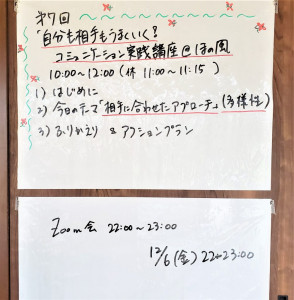 第7回
「自分も相手もうまくいく!
コミュニケーション実践講座@ほの風
10:00~12:00 (休 11:00~11:15)
1) はじめに
2) 今日のテーマ「相手に合わせたアプローチ」(多様性)
3) ふりかえり & アクションプラン
Zoom会 22:00~23:00
12/6(金) 22~23:00